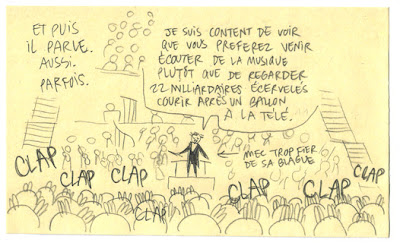 ET PUIS
IL PARLE.
AUSSI.
PARFOIS.
JE SUIS CONTENT DE VOIR
QUE VOUS PREFEREZ VENIR
ÉCOUTER DE LA MUSIQUE
PLUTÔT QUE DE REGARDER
22 MILLIARDAIRES ÉCERVELÉS
COURIR APRÈS UN BALLON
À LA TÉLÉ.
MEC TROP FIER
DE SA BLAGUE
CLAP
CLAP
CLAP
CLAP
CLAP
CLAP
CLAP